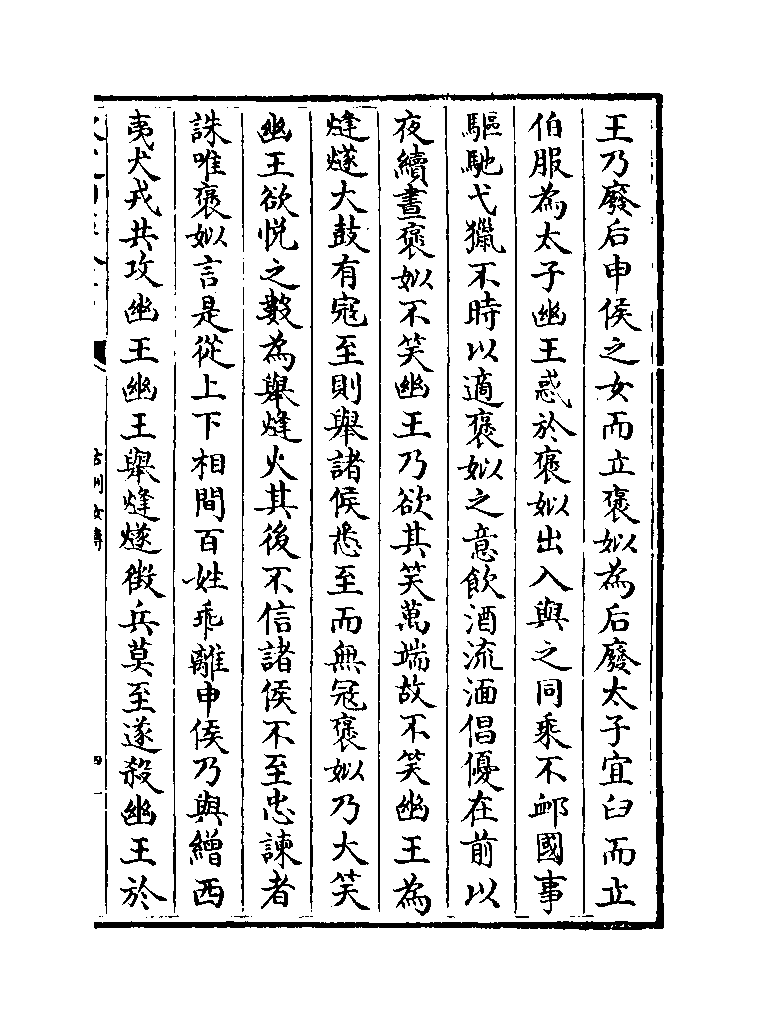 王乃廢后申侯之女而立褒姒為后廢太子宜臼而立
伯服為太子幽王惑於褒姒出入與之同乘不衈國事
驅馳弋獵不時以適褒姒之意飲酒流湎倡優在前以
夜續晝褒姒不笑幽王乃欲其笑萬端故不笑幽王為
熢燧大鼓有宼至則舉諸侯悉至而無冦褒姒乃大笑
幽王欲悦之數為舉熢火其後不信諸侯不至忠諫者
誅唯褒姒言是從上下相間百姓乖離申侯乃與繒西
夷犬戎共攻幽王幽王舉熢燧徴兵莫至遂殺幽王於
古列女傳